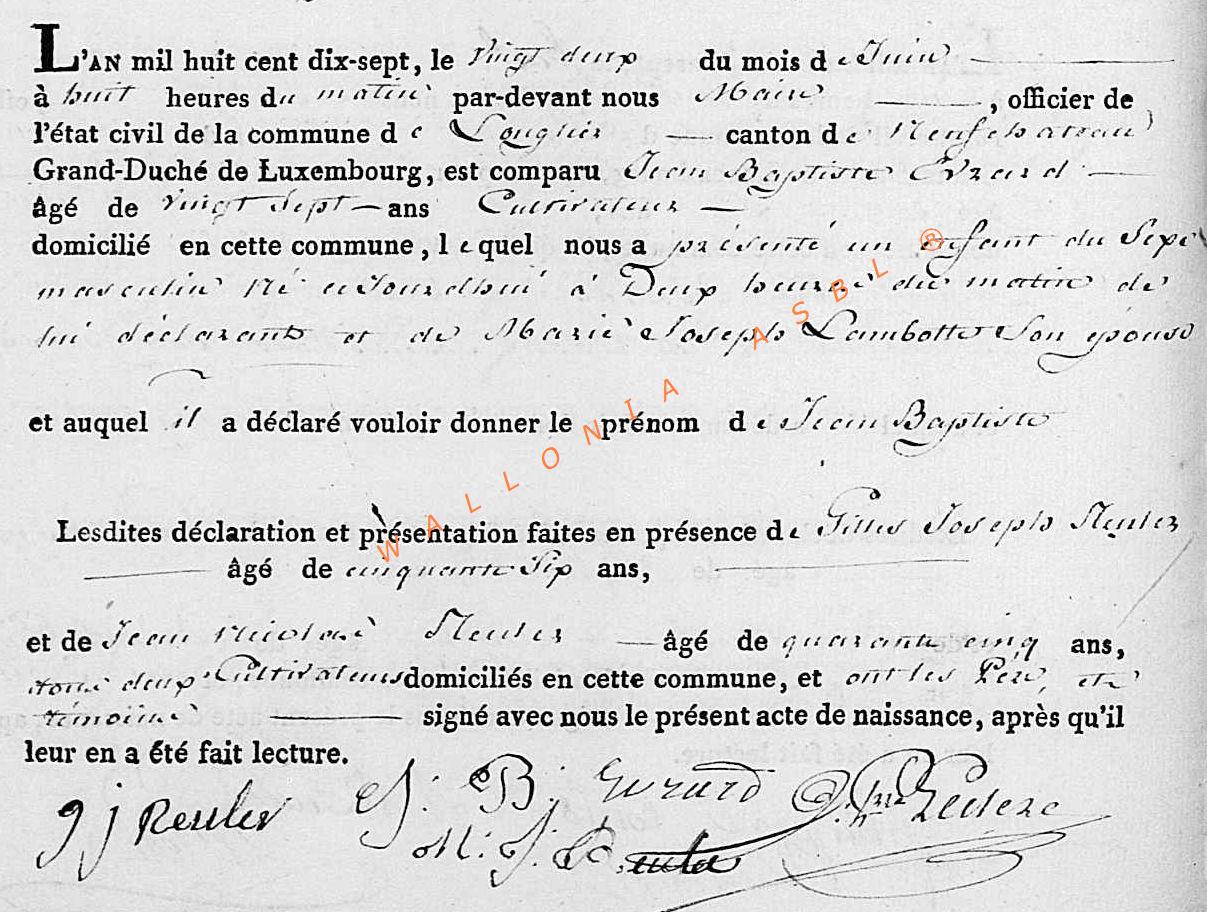 L'AN mil huit cent dix-sept, le vingt deux du mois de Juin
à huit heures du matin par-devant nous Maire, officier de
l'état civil de la commune de Longlier canton de Neufchateau
Grand-Duché de Luxembourg, est comparu Jean Baptiste Evrard
âgé de vingt sept ans Cultivateur
domicilié en cette commune, lequel nous a présenté un enfant du Sexe
masculin né aujourdhui à Deux heures du matin de
lui déclarant et de Marie Joseph Lambotte Son épouse
et auquel il a déclaré vouloir donner le prénom de Jean Baptiste
Lesdites déclaration et présentation faites en présence de Gilles Joseph Reuler
âgé de cinquante Six ans,
et de Jean Nicolas Reuler âgé de quarante cinq ans,
tous deux Cultivateurs domiciliés en cette commune, et ont les Père et
témoins signé avec nous le présent acte de naissance, après qu'il
leur en a été fait lecture.
g j Reuler J: B: Evrard Leclerc
WALLONIA ASBL ®